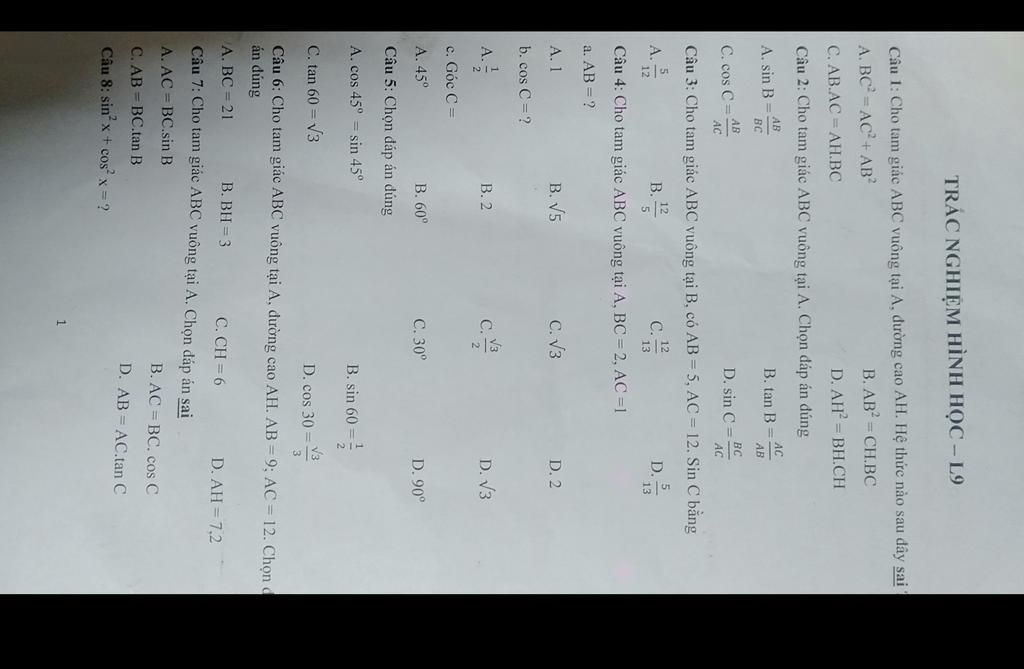 TRẮC NGHIỆM HÌNH HỌC – L9
Câu 1: Cho tam giác ABC vuông tại A, đường cao AH. Hệ thức nào sau đây sai
A. BC² = AC² + AB² B. AB² = CH.BC
C. AB.AC = AH.BC D. AH² = BH.CH
Câu 2: Cho tam giác ABC vuông tại A. Chọn đáp án đúng
A. sin B = AB/BC B. tan B = AC/AB
C. cos C = AB/AC D. sin C = BC/AC
Câu 3: Cho tam giác ABC vuông tại B, có AB = 5, AC = 12. Sin C bằng
A. 5/12 B. 12/5 C. 12/13 D. 5/13
Câu 4: Cho tam giác ABC vuông tại A, BC = 2, AC =1
a. AB = ?
A. 1 B. √5 C. √3 D. 2
b. cos C = ?
A. 1/2 B. 2 C. √3/2 D. √3
c. Góc C =
A. 45° B. 60° C. 30° D. 90°
Câu 5: Chọn đáp án đúng
A. cos 45° = sin 45° B. sin 60 = 1/2
C. tan 60 = √3 D. cos 30 = √3/3
Câu 6: Cho tam giác ABC vuông tại A, đường cao AH. AB = 9; AC = 12. Chọn đ
án đúng
A. BC = 21 B. BH = 3 C. CH = 6 D. AH = 7,2
Câu 7: Cho tam giác ABC vuông tại A. Chọn đáp án sai
A. AC = BC.sin B B. AC = BC. cos C
C. AB = BC.tan B D. AB = AC.tan C
Câu 8: sin² x + cos² x = ?
1